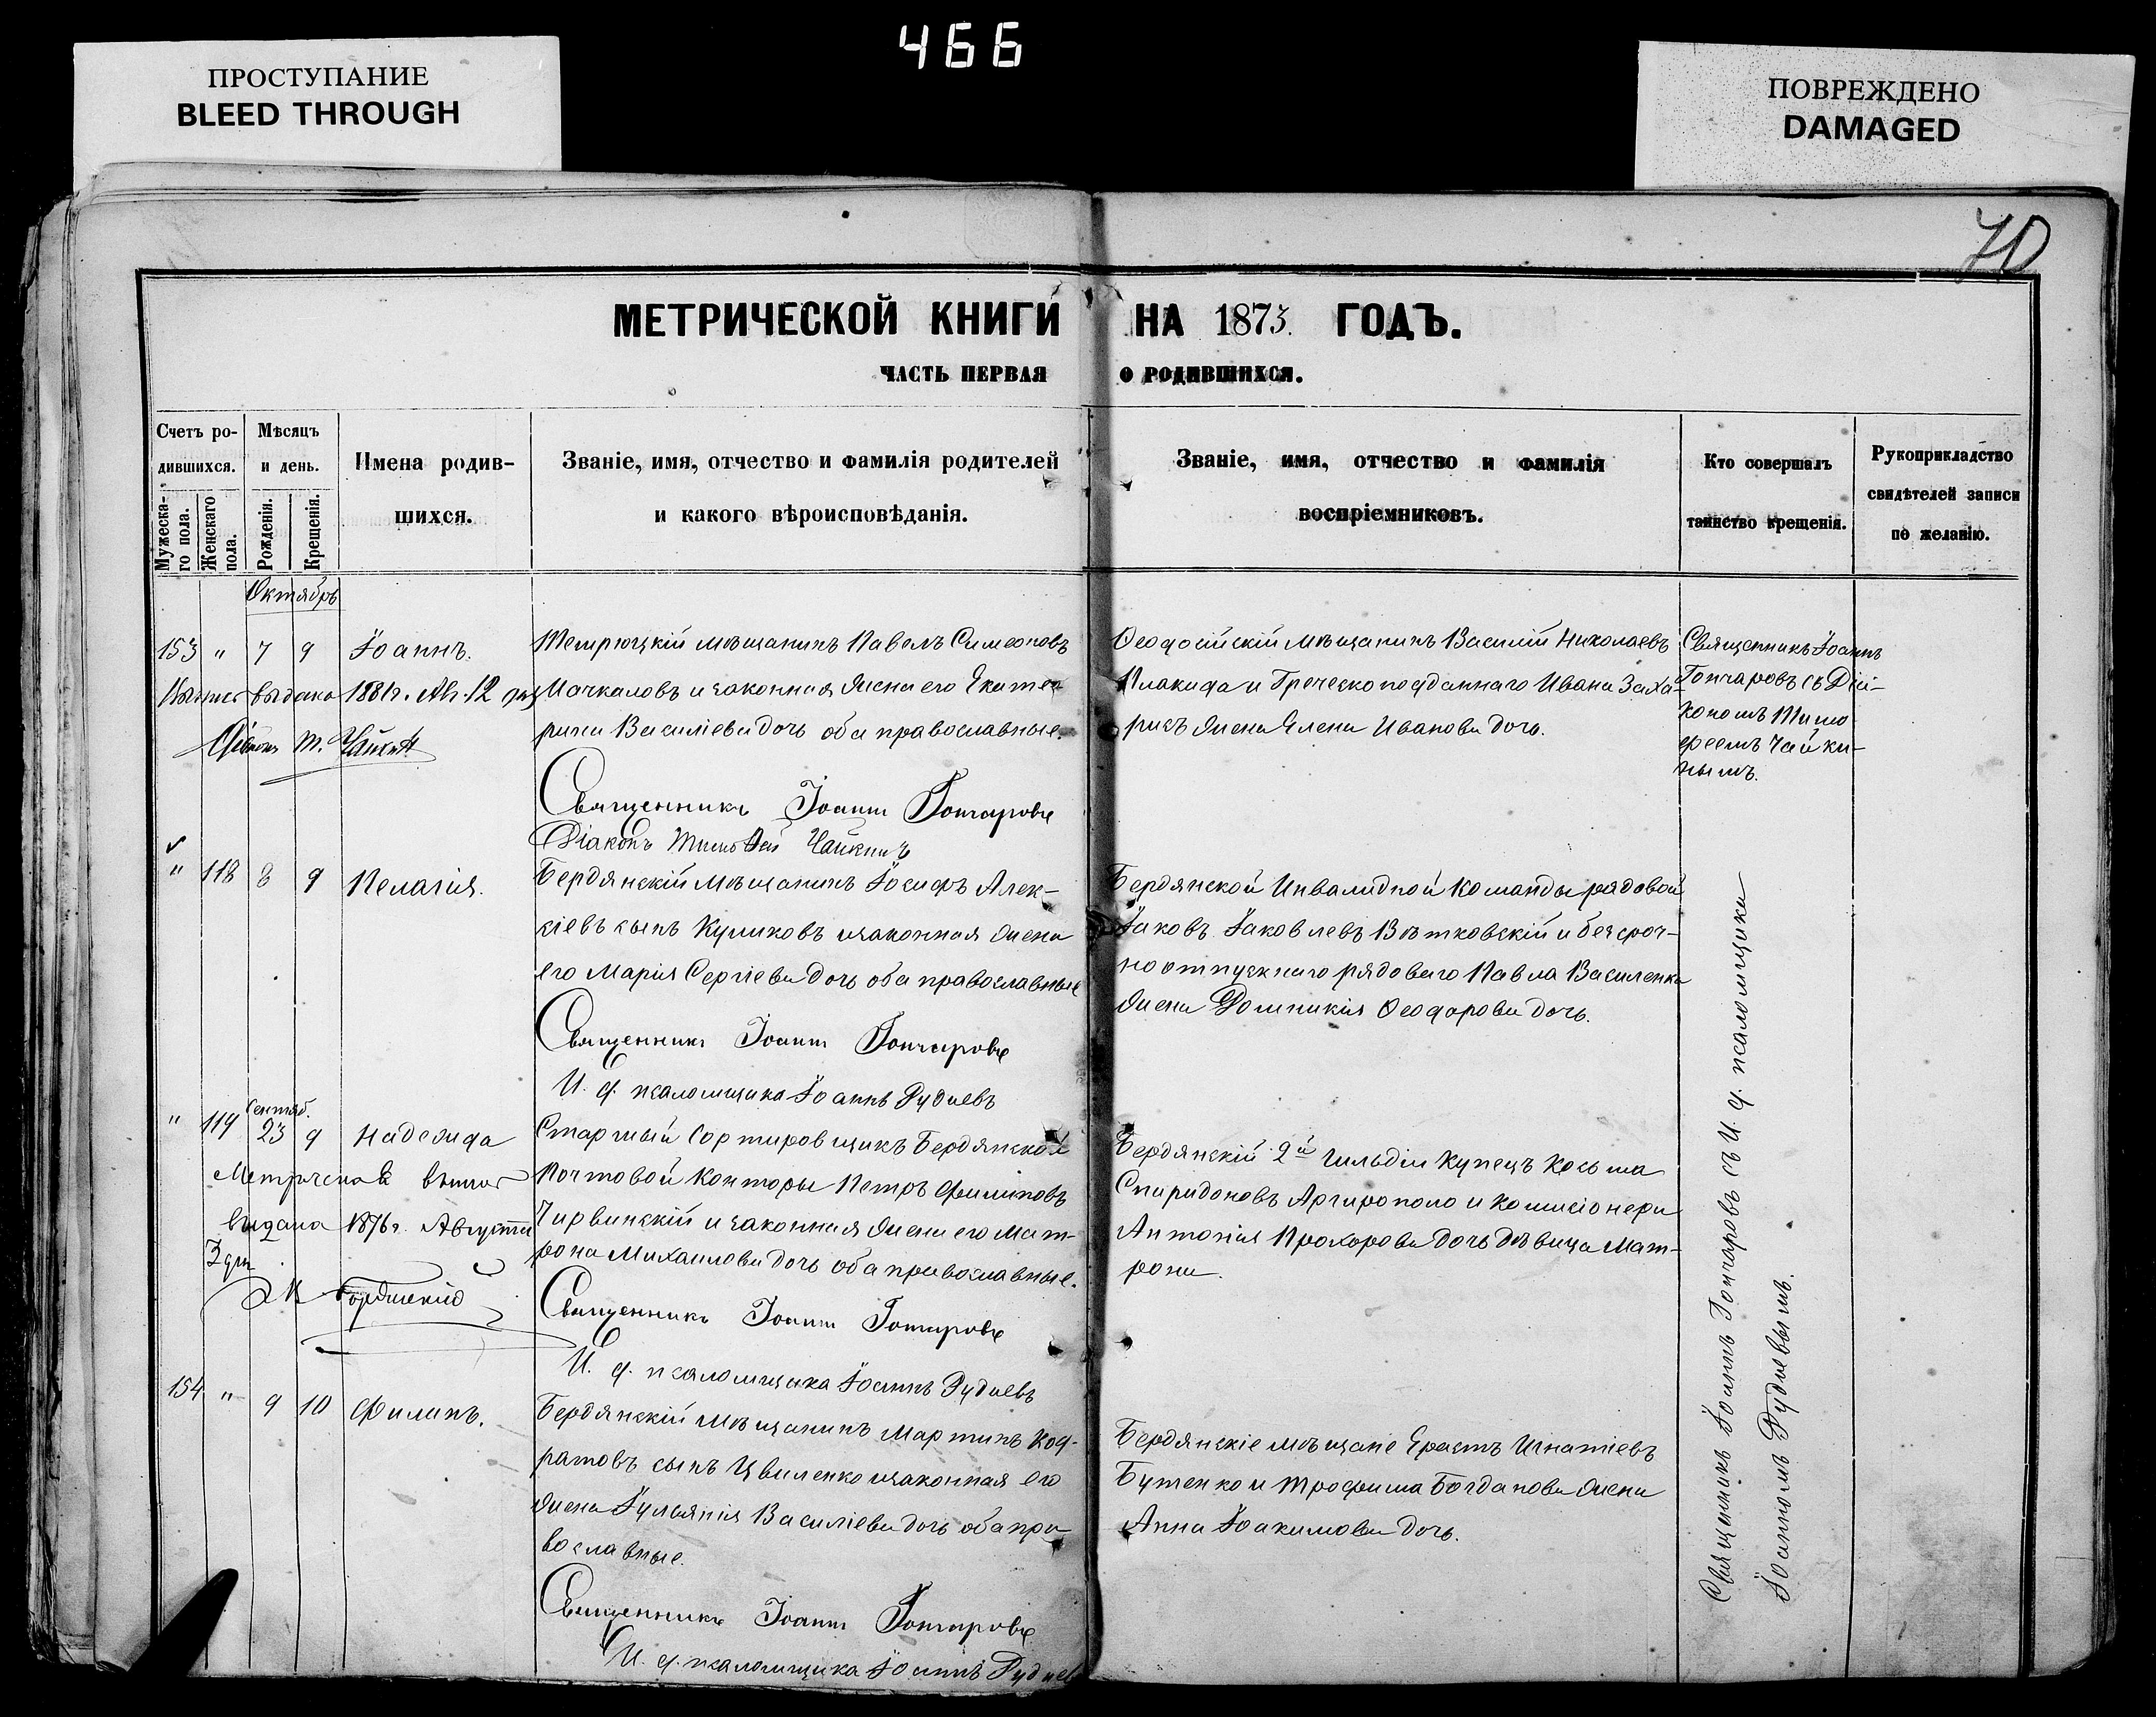 466
ПРОСТУПАНИЕ
BLEED THROUGH
ПОВРЕЖДЕНО
DAMAGED
70
МЕТРИЧЕСКОЙ КНИГИ НА 1873. ГОДЪ.
ЧАСТЬ ПЕРВАЯ О РОДИВШИХСЯ.
Счетъ ро-
дившихся.
Мужеска-
го пола.
Женскаго
пола.
Мѣсяцъ
и день.
Рожденія.
Крещенія.
Имена родив-
шихся.
Званіе, имя, отчество и фамилія родителей
и какого вѣроисповѣданія.
Званіе, имя, отчество и фамилія
воспріемниковъ.
Кто совершалъ
таинство крещенія.
Рукоприкладство
свидѣтелей записи
по желанію.
Октябрь
153 " 7 9 Іоаннъ.
выдано 1881г. 12
Діаконъ Т. Чайкинъ
Темрюцкій мѣщанинъ Павелъ Симеоновъ
Мачкаловъ и законная жена его Екате-
рина Василіева дочь оба православные.
Священникъ Іоаннъ Гончаровъ
Діаконъ Тимофей Чайкинъ
Ѳеодосійскій мѣщанинъ Василій Николаевъ
Плакида и Греческоподданнаго Ивана Заха-
рисъ жена Елена Иванова дочь.
Священникъ Іоаннъ
Гончаровъ съ Діа-
кономъ Тимо-
феемъ Чайки-
нымъ.
" 118 8 9 Пелагія.
Бердянскій мѣщанинъ Іосифъ Алек-
сіевъ сынъ Куликовъ и законная жена
его Марія Сергіева дочь оба православные
Священникъ Іоаннъ Гончаровъ
И. д. псаломщика Іоаннъ Рудневъ
Бердянской Инвалидной команды рядовой
Іаковъ Іаковлевъ Вѣтковскій и безсроч-
ноотпускнаго рядоваго Павла Василенка
жена Домникія Ѳеодорова дочь.
Сентяб.
" 119 23 9 Надежда
выдана 1876г. Августа
3 дня
Старшый сортировщикъ Бердянской
Почтовой Конторы Петръ Филиповъ
Чирвинскій и законная жена его Мат-
рона Михаилова дочь оба православные.
Священникъ Іоаннъ Гончаровъ
И. д. псаломщика Іоаннъ Рудневъ
Бердянскій 2й гильдіи купецъ Косьма
Спиридоновъ Аргирополо и комисіонера
Антонія Прохорова дочь дѣвица Мат-
рона.
154 " 9 10 Филипъ.
Бердянскій мѣщанинъ Мартинъ Код-
ратовъ сынъ Цвиленко и законная его
жена Іуліанія Василіева дочь оба пра-
вославные.
Священникъ Іоаннъ Гончаровъ
И. д. псаломщика Іоаннъ Руднев
Бердянскіе мѣщане Ерастъ Игнатіевъ
Бутенко и Трофима Богданова жена
Анна Іоакимова дочь.
Священникъ Іоаннъ Гончаровъ съ И. д. псаломщика
Іоанномъ Рудневымъ.